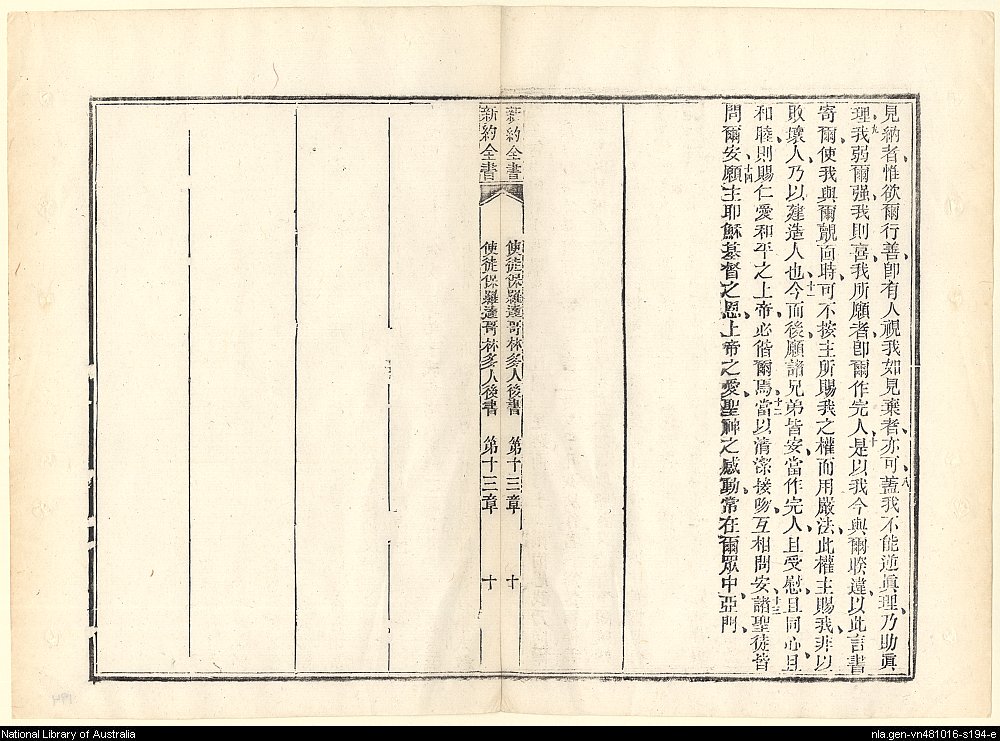 見納者惟欲爾行善卽有人視我如見棄者亦可八蓋我不能逆眞理乃助眞
理九我弱爾强我則喜我所願者卽爾作完人十是以我今與爾睽違以此言書
寄爾使我與爾覿面時可不按主所賜我之權而用嚴法此權主賜我非以
敗壞人乃以建造人也十一今而後願諸兄弟皆安當作完人且受慰且同心且
和睦則賜仁愛和平之上帝必偕爾焉十二當以淸潔接吻互相問安十三諸聖徒皆
問爾安十四願主耶穌基督之恩上帝之愛聖神之感動常在爾眾中亞門
新約全書 使徒保羅達哥林多人後書 第十三章 十
新約全書 使徒保羅達哥林多人後書 第十三章 十
National Library of Australia
nla.gen-vn481016-s194-e